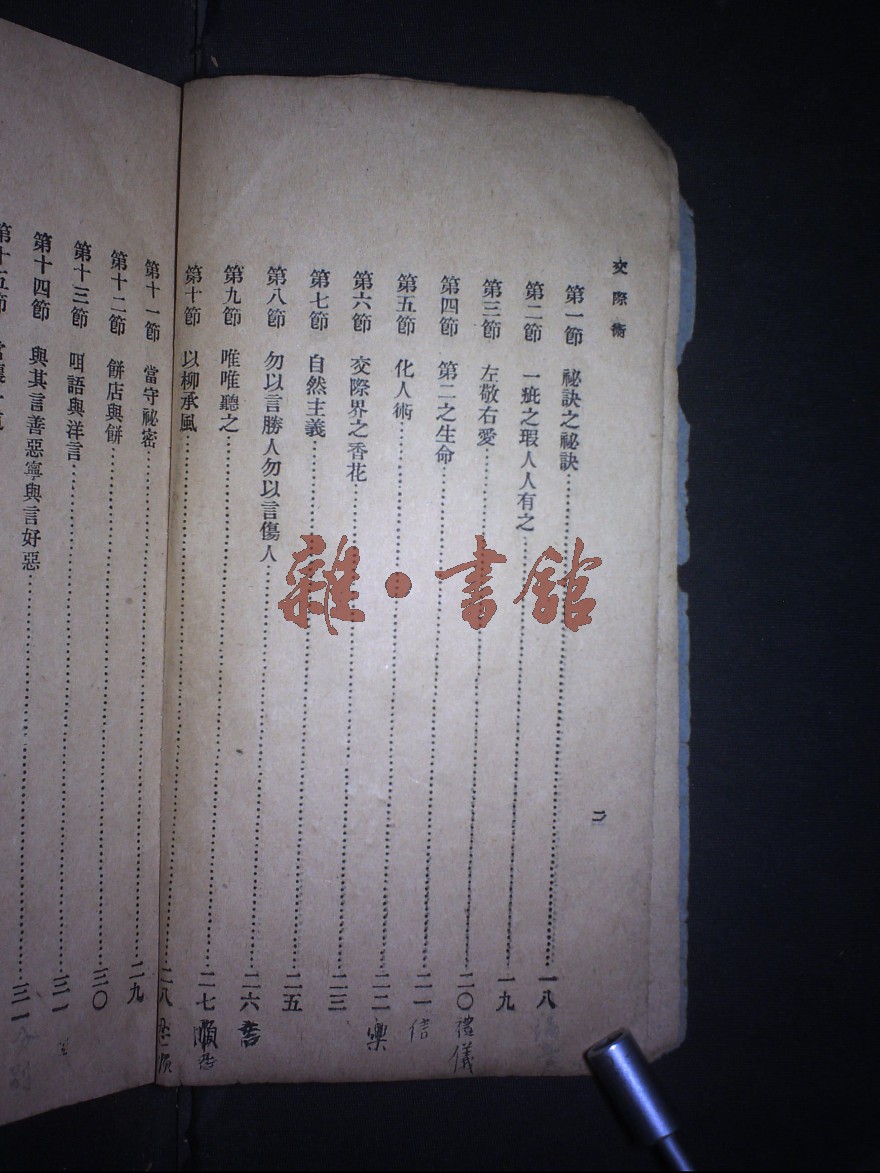 交際術
第一節 祕訣之祕訣 一八
第二節 一疵之瑕人人有之 一九
第三節 左敬右愛 二〇 禮儀
第四節 第二之生命 二一 信
第五節 化人術 二二 樂
第六節 交際界之香花 二三
第七節 自然主義 二五
第八節 勿以言勝人勿以言傷人 二六 言
第九節 唯唯聽之 二七 順
第十節 以柳承風 二八
第十一節 當守祕密 二九
第十二節 餅店與餅 三〇
第十三節 呾語與洋言 三一
第十四節 與其言善惡寧與言好惡 三一
第十五節
二
雜·書館